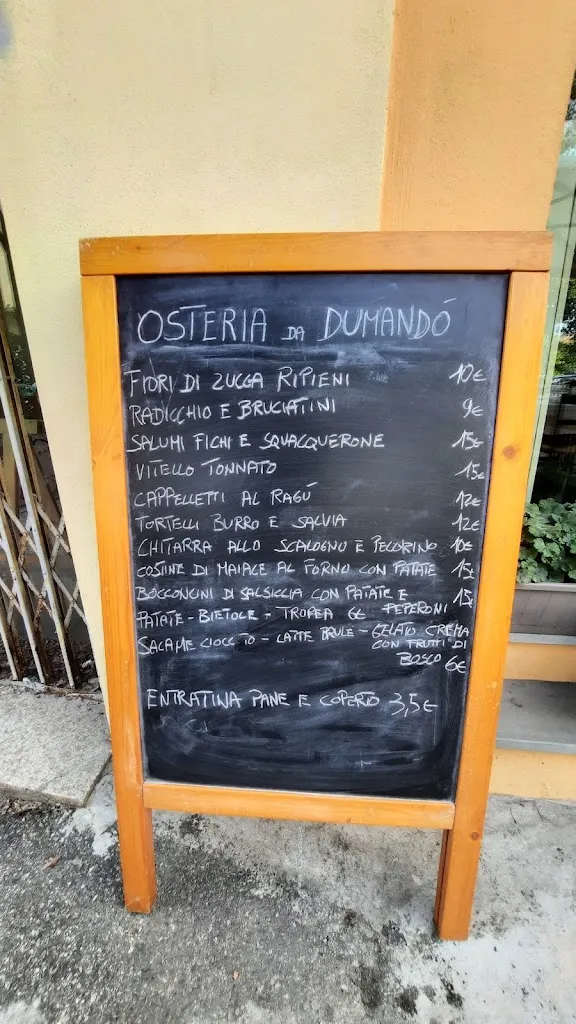 OSTERIA DA DUMANDÓ
FIORI DI ZUCCA RIPIENI 10€
RADICCHIO E BRUCIATINI 9€
SALUMI FICHI E SQUACQUERONE 15€
VITELLO TONNATO 15€
CAPPELLETTI AL RAGÚ 12€
TORTELLI BURRO E SALVIA 12€
CHITARRA ALLO SCALOGNO E PECORINO 10€
COSTINE DI MAIALE AL FORNO CON PATATE 15€
BOCCONCINI DI SALSICCIA CON PATATE E 15€
PATATE - BIETOLE - TROPEA 6€ PEPERONI
SALAME CIOCC TO - LATTE BRULE - GELATO CREMA
CON FRUTTI DI
BOSCO 6€
ENTRATINA PANE E COPERTO 3,5€